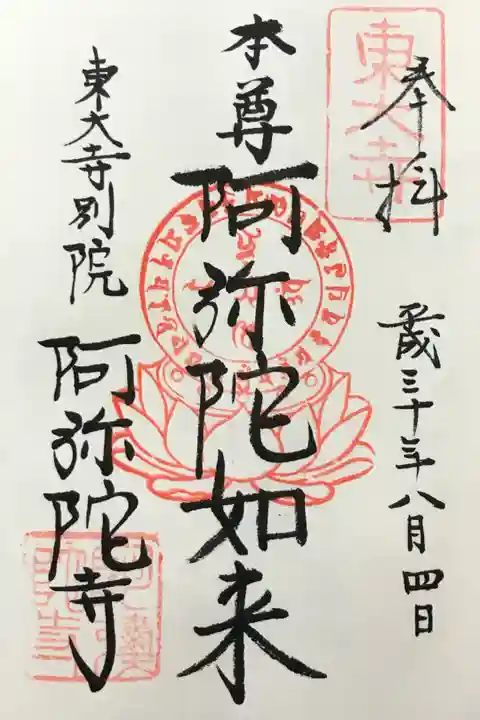 奉拝
東大寺
平成三十年八月四日
本尊
阿弥陀如来
東大寺別院
阿弥陀寺